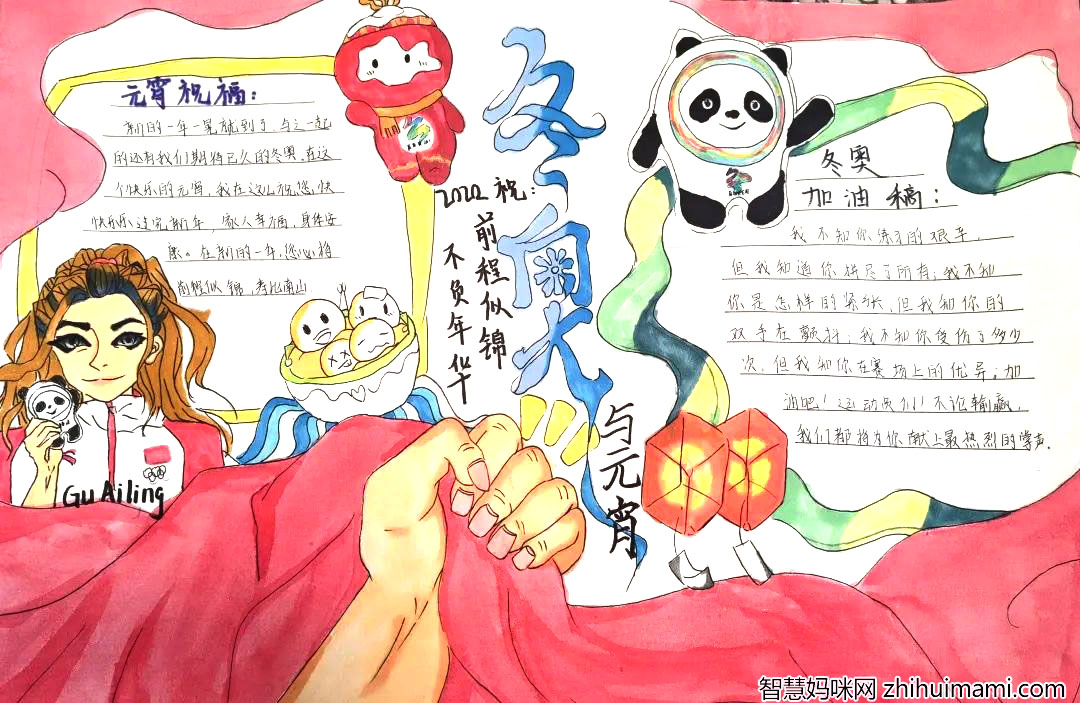 元宵祝福:
新的一年又来到了,与之一起
的还有我们期待已久的冬奥,在这
个快乐的元宵,我在这儿祝您快
快乐乐过完新年,家人幸福,身体安
康。在新的一年,您必将
前程似锦,寿比南山
2022祝:
前程似锦
不负年华
冬
奥
与元宵
冬奥
加油稿:
我不知你练习的艰辛,
但我知道你拼尽了所有;我不知
你是怎样的紧张,但我知你的
双手在颤抖;我不知你受伤了多少
次,但我知你在赛场上的优异。加
油吧!运动员们!不论输赢,
我们都将为你献上最热烈的掌声.
Gu Ailing
智慧妈咪网 zhihuimami.com